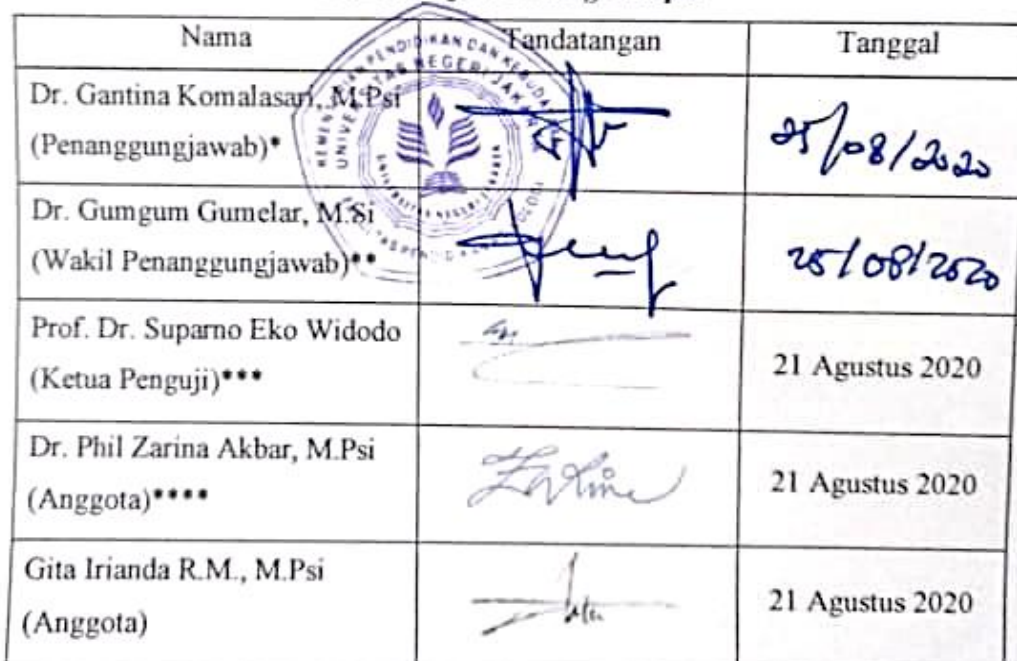 Nama Tandatangan Tanggal
Dr. Gantina Komalasari, M.Psi
(Penanggungjawab)*
25/08/2020
Dr. Gumgum Gumelar, M.Si
(Wakil Penanggungjawab)**
25/08/2020
Prof. Dr. Suparno Eko Widodo
(Ketua Penguji)***
21 Agustus 2020
Dr. Phil Zarina Akbar, M.Psi
(Anggota)****
21 Agustus 2020
Gita Irianda R.M., M.Psi
(Anggota)
21 Agustus 2020
KEMENTERIAN PENDIDIKAN DAN KEBUDAYAAN
UNIVERSITAS NEGERI JAKARTA
UNIVERSITAS NEGERI JAKARTA